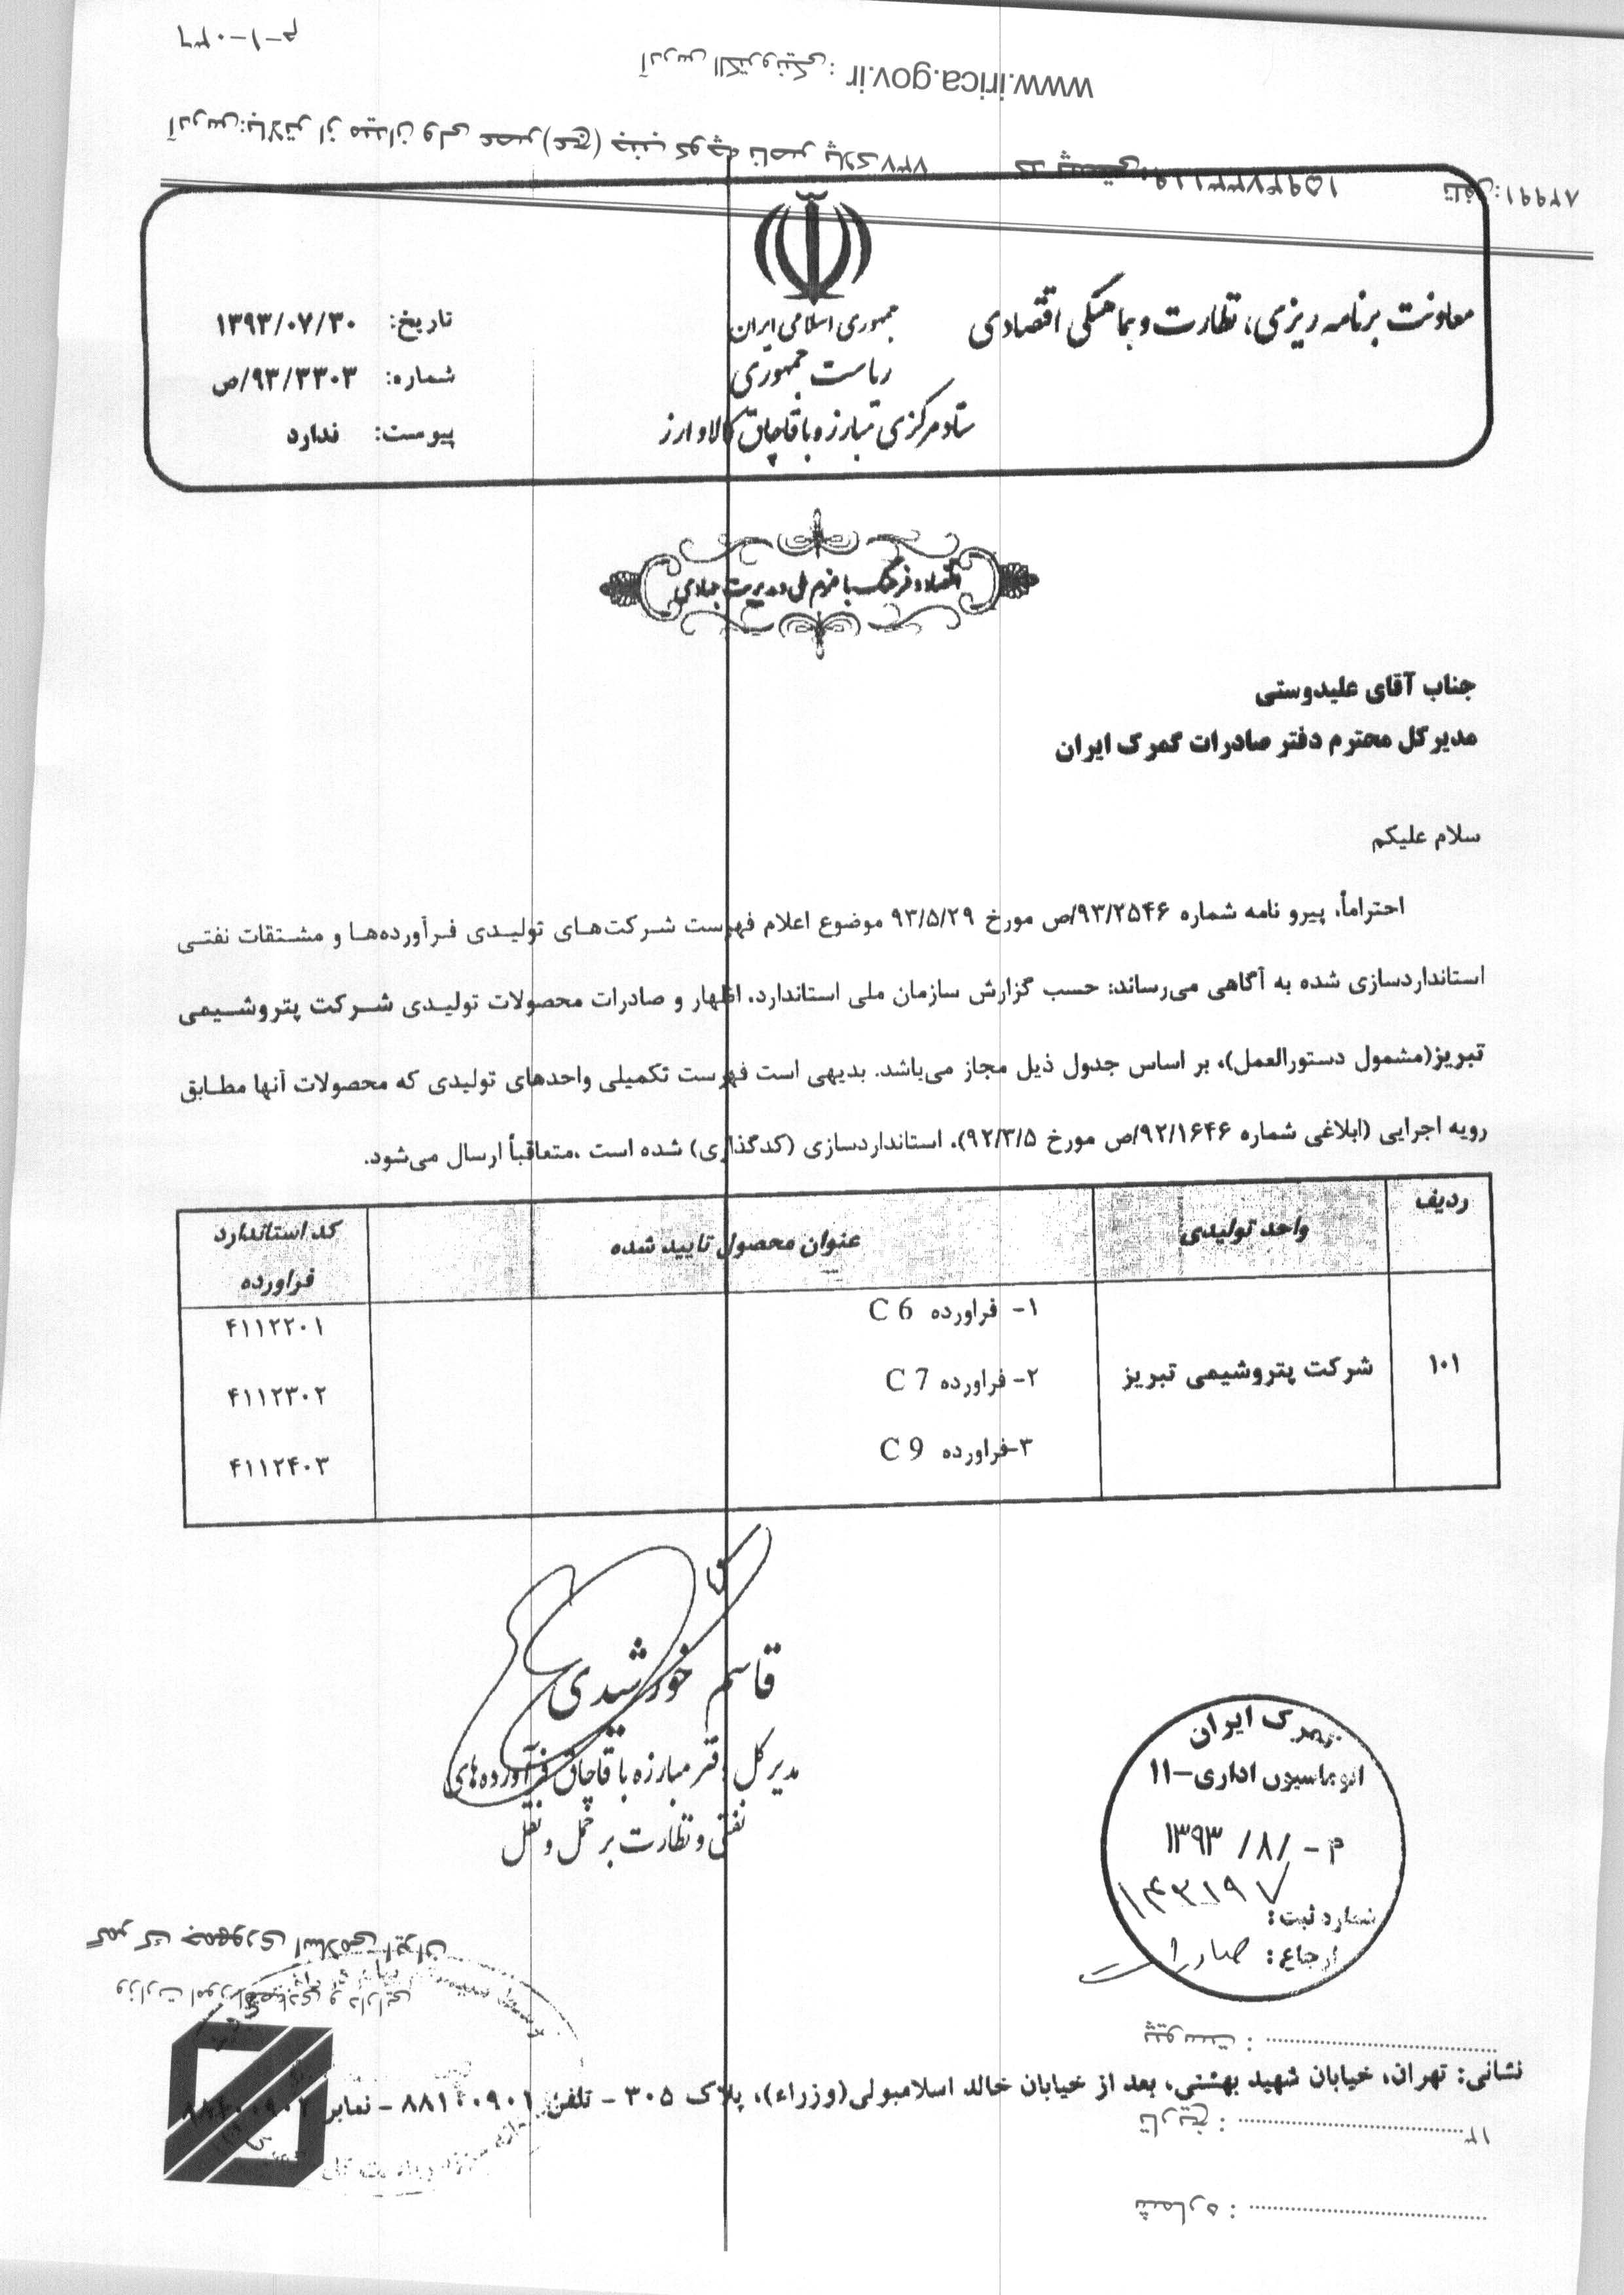 م-۱-۰۳۶
آدرس الکترونیکی: www.irica.gov.ir
آدرس: بالاتر از میدان ولی عصر(عج) جنب کوچه ناصر پلاک ۷۳۷ کد پستی: ۱۵۹۴۷۳۳۱۱۹ تلفن: ۸۲۹۹۱
معاونت برنامه ریزی، نظارت و هماهنگی اقتصادی
جمهوری اسلامی ایران
ریاست جمهوری
ستاد مرکزی مبارزه با قاچاق کالا و ارز
تاریخ: ۱۳۹۳/۰۷/۳۰
شماره: ۹۳/۳۳۰۳/ص
پیوست: ندارد
اقتصاد و فرهنگ با عزم ملی و مدیریت جهادی
جناب آقای علیدوستی
مدیرکل محترم دفتر صادرات گمرک ایران
سلام علیکم
احتراماً، پیرو نامه شماره ۹۳/۲۵۴۶/ص مورخ ۹۳/۵/۲۹ موضوع اعلام فهرست شرکت‌های تولیدی فرآورده‌ها و مشتقات نفتی
استانداردسازی شده به آگاهی می‌رساند: حسب گزارش سازمان ملی استاندارد، اظهار و صادرات محصولات تولیدی شرکت پتروشیمی
تبریز(مشمول دستورالعمل)، بر اساس جدول ذیل مجاز می‌باشد. بدیهی است فهرست تکمیلی واحدهای تولیدی که محصولات آنها مطابق
رویه اجرایی (ابلاغی شماره ۹۲/۱۶۴۶/ص مورخ ۹۲/۳/۵)، استانداردسازی (کدگذاری) شده است ،متعاقباً ارسال می‌شود.
ردیف واحد تولیدی عنوان محصول تایید شده کد استاندارد فراورده
۱۰۱ شرکت پتروشیمی تبریز
۱- فراورده C 6 ۴۱۱۲۲۰۱
۲- فراورده C 7 ۴۱۱۲۳۰۲
۳-فراورده C 9 ۴۱۱۲۴۰۳
قاسم خورشیدی
مدیر کل دفتر مبارزه با قاچاق فرآورده‌های
نفتی و نظارت بر حمل و نقل
گمرک ایران
اتوماسیون اداری-۱۱
۱۳۹۳ /۸/ - م
شماره ثبت: ۱۴۳۱۹۷
ارجاع: صادرات
گمرک جمهوری اسلامی ایران
وزارت امور اقتصادی و دارایی
پیوست :
نشانی: تهران، خیابان شهید بهشتی، بعد از خیابان خالد اسلامبولی(وزراء)، پلاک ۳۰۵ - تلفن ۸۸۱۰۰۹۰۱ - نمابر
تاریخ : ۱۳
شماره :